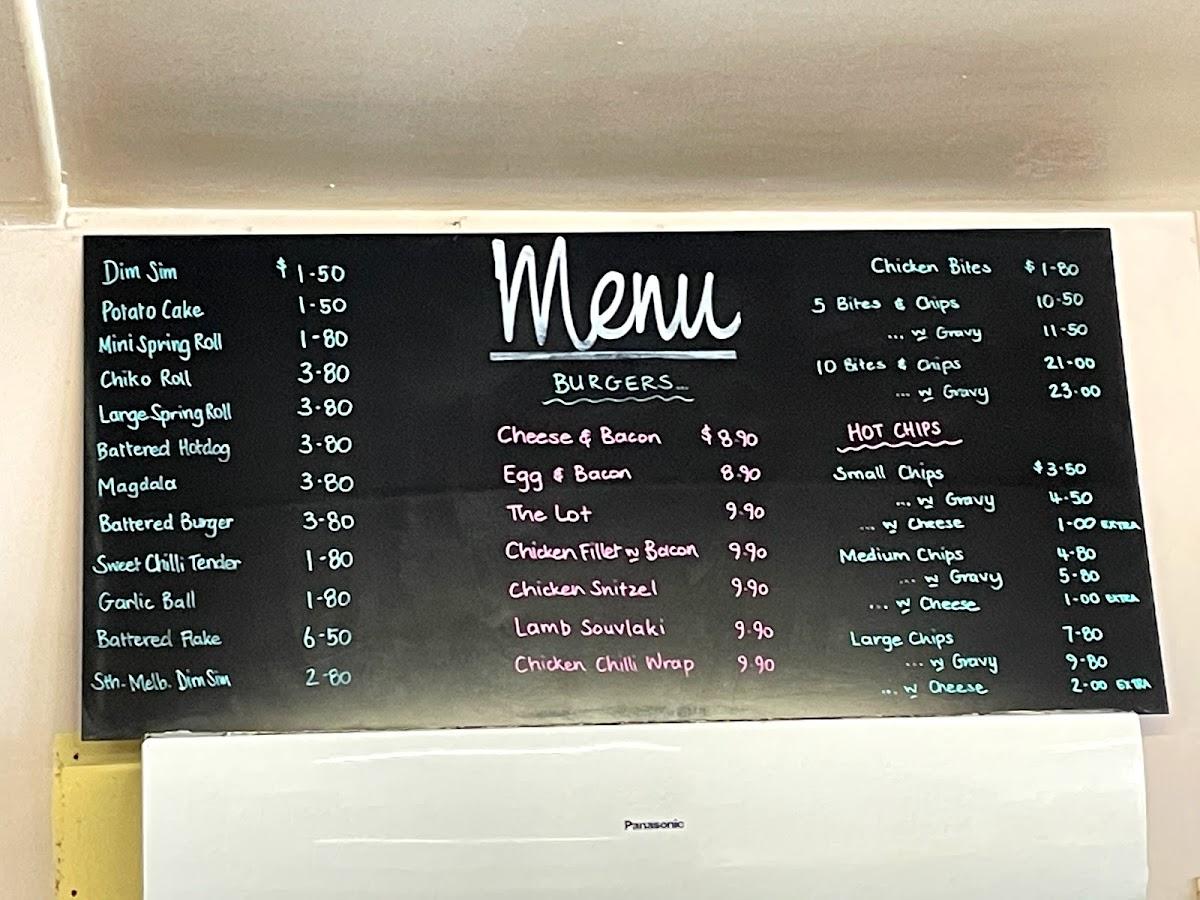 Dim Sim $ 1-50
Potato Cake 1-50
Mini Spring Roll 1-80
Chiko Roll 3-80
Large Spring Roll 3-80
Battered Hotdog 3-80
Magdala 3-80
Battered Burger 3-80
Sweet Chilli Tender 1-80
Garlic Ball 1-80
Battered Flake 6-50
Sth. Melb. Dim Sim 2-80
Menu
BURGERS...
Cheese & Bacon $ 8.90
Egg & Bacon 8.90
The Lot 9.90
Chicken Fillet w Bacon 9.90
Chicken Snitzel 9.90
Lamb Souvlaki 9.90
Chicken Chilli Wrap 9.90
Chicken Bites $ 1-80
5 Bites & Chips 10-50
... w Gravy 11-50
10 Bites & Chips 21-00
... w Gravy 23-00
HOT CHIPS
Small Chips $ 3-50
... w Gravy 4-50
... w Cheese 1-00 EXTRA
Medium Chips 4-80
... w Gravy 5-80
... w Cheese 1-00 EXTRA
Large Chips 7-80
... w Gravy 9-80
... w Cheese 2-00 EXTRA
Panasonic